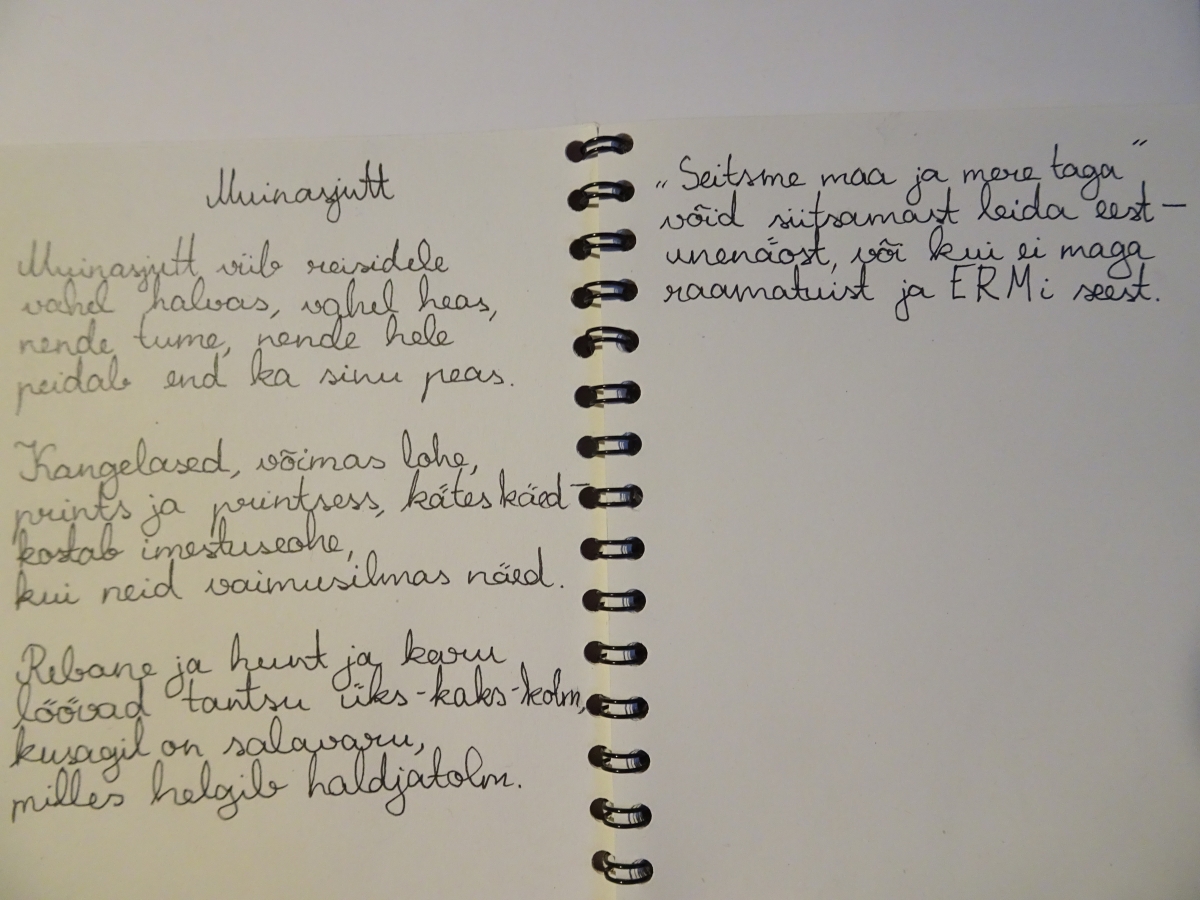 Muinasjutt
Muinasjutt viib reisidele
vahel halvas, vahel heas,
nende tume, nende hele
peidab end ka sinu peas.
Kangelased, võimas lohe,
prints ja printsess, kätes käed –
kostab imestuseohe,
kui neid vaimusilmas näed.
Rebane ja hunt ja karu
löövad tantsu üks-kaks-kolm,
kusagil on salavaru,
milles helgib haldjatolm.
„Seitsme maa ja mere taga"
võid siitsamast leida eest –
unenäost, või kui ei maga
raamatuist ja ERMi seest.